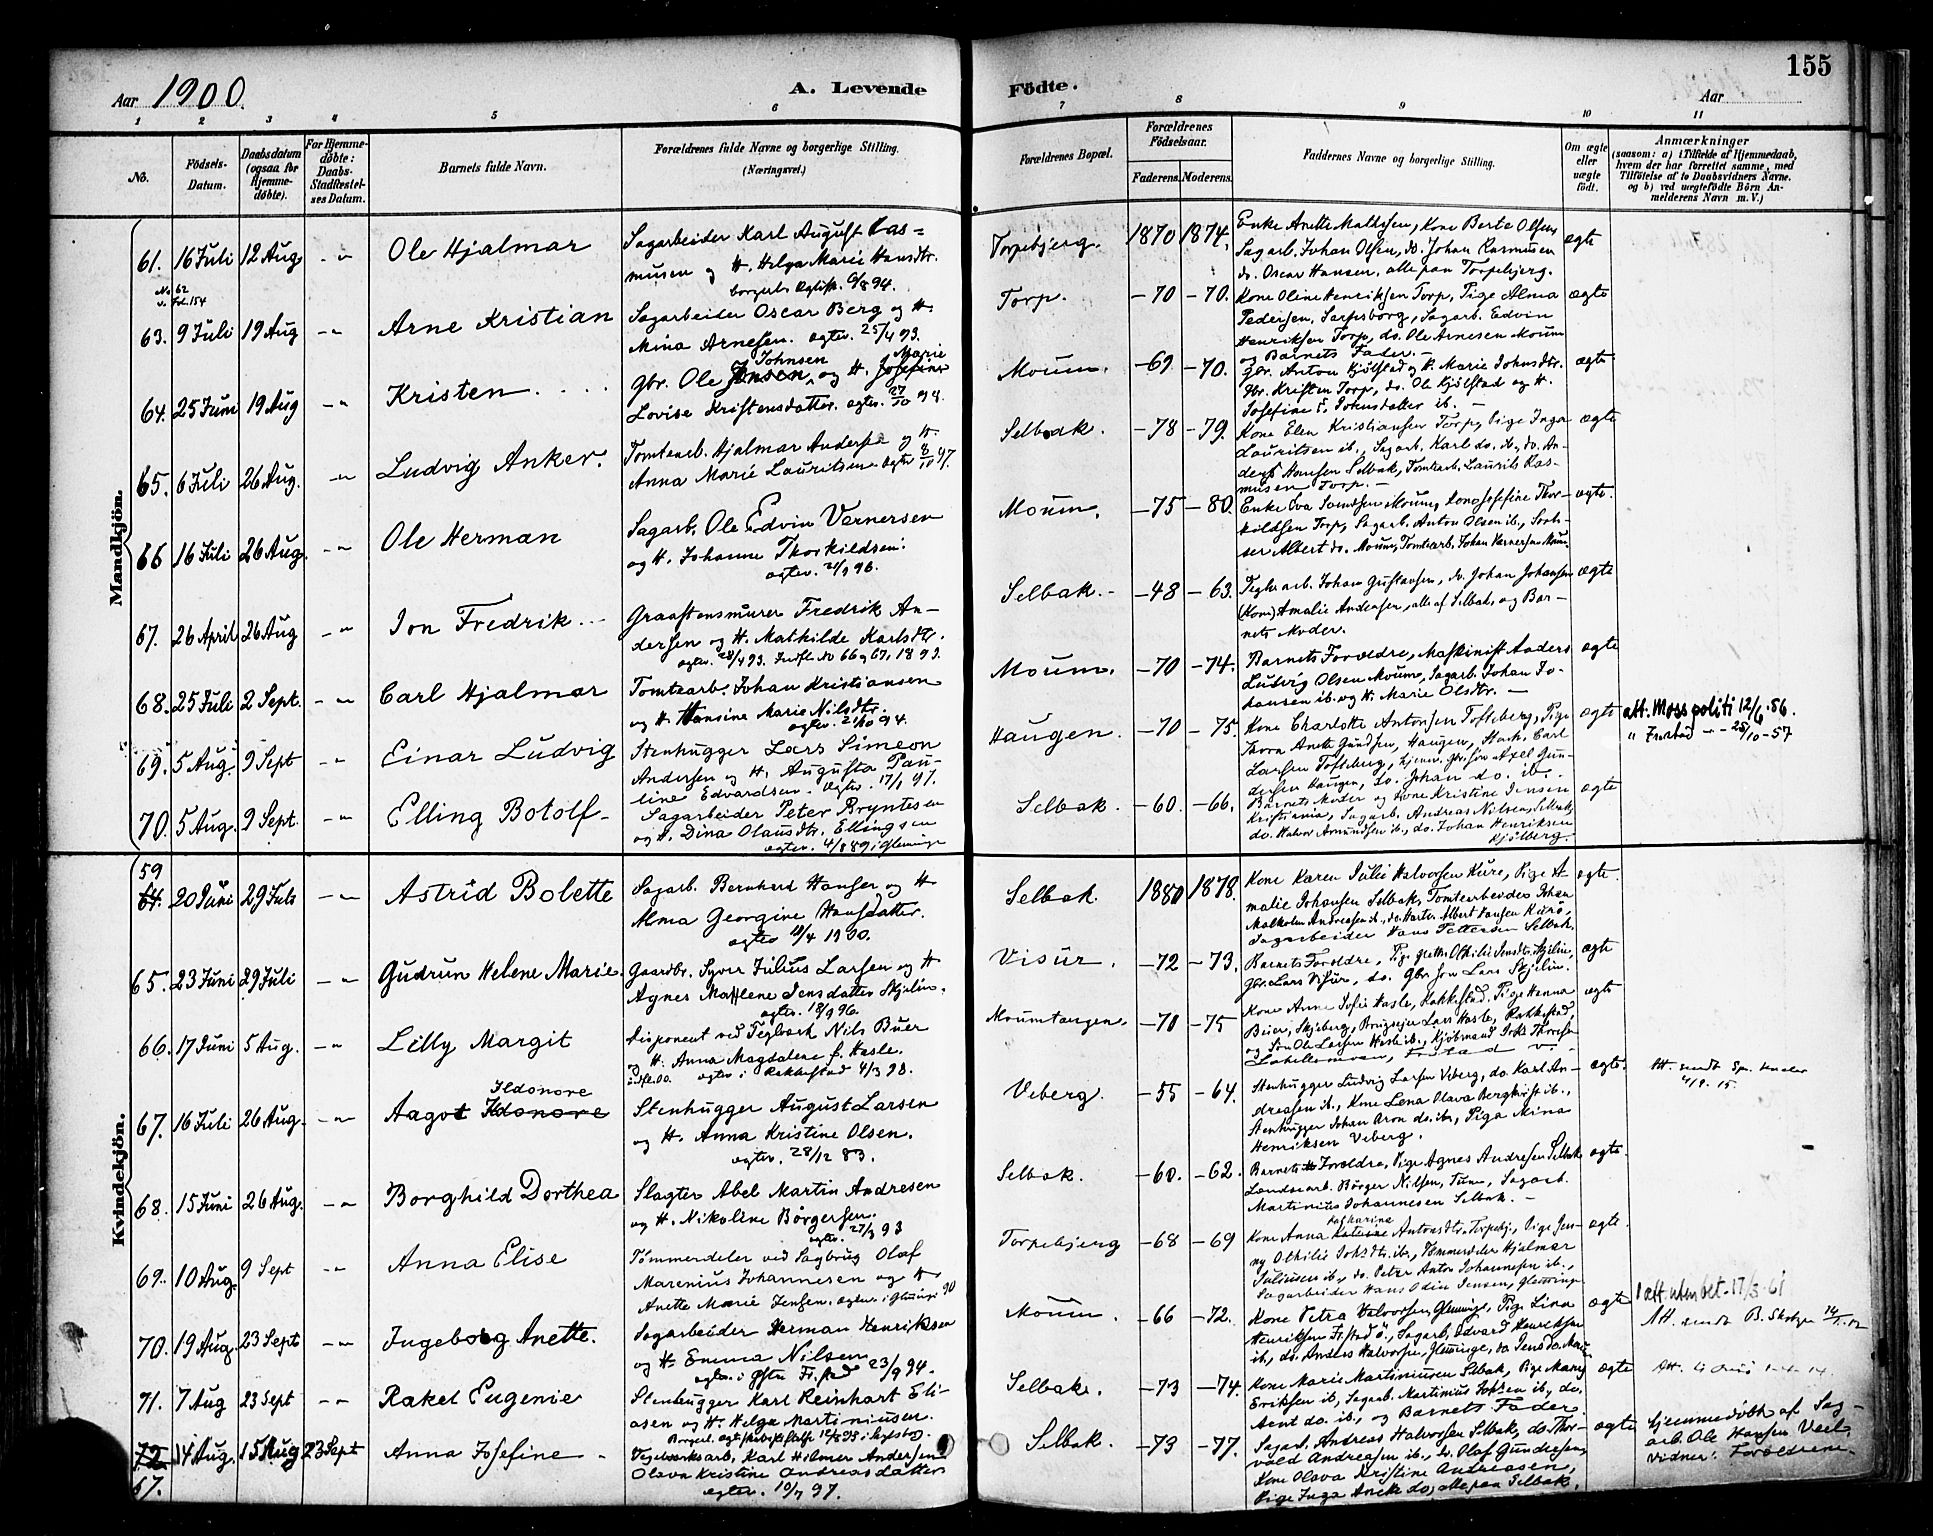 155
Aar 1900.
A. Levende Fødte.
Aar
1 2 3 4 5 6 7 8 9 10 11
No.
Fødsels-Datum.
Daabsdatum (ogsaa for Hjemme-døbte).
For Hjemme-døbte: Daabs-Stadfæstel-ses Datum.
Barnets fulde Navn.
Forældrenes fulde Navne og borgerlige Stilling.
(Næringsvei.)
Forældrenes Bopæl.
Forældrenes Fødselsaar.
Faderens. Moderens.
Faddernes Navne og borgerlige Stilling.
Om ægte eller uægte født.
Anmærkninger
(saasom: a) i Tilfælde af Hjemmedaab,
hvem der har forrettet samme, med
Tilføielse af to Daabsvidners Navne.
og b) ved uægtefødte Børn An-
melderens Navn m. V.)
Mandkjön.
61. 16 Juli 12 Aug - " Ole Hjalmar
Sagarbeider Karl August Ras=
musen og H. Helga Marie Hansdtr.
Torpebjerg. 1870 1874.
Enke Anette Mathisen, Kone Berte Olsen
Sagarb. Johan Olsen, do. Johan Rasmusen
do. Oscar Hansen, alle paa Torpebjerg.
ægte
No 62
v. Fol. 154
63. 9 Juli 19 Aug - " Arne Kristian
Sagarbeider Oscar Berg og H.
Mina Arnesen. ægtev. 25/4 93.
Torp. -70 -70.
Kone Oline Henriksen Torp, Pige Alma
Pedersen, Sarpsborg, Sagarb. Edvin
Henriksen Torp, do. Ole Arnesen Moum
og Barnets Fader. -
ægte
64. 25 Juni 19 Aug - " Kristen
Gbr. Ole Johnsen og H. Josefine Marie
Lovise Kristensdatter. ægtev. 27/10 94.
Moum. -69 -70.
Gbr. Anton Kjölstad og H. Marie Johnsdtr.
Gbr. Kristen Torp, do. Ole Kjölstad og H.
Josefine F. Johnsdatter ib. -
ægte
65. 6 Juli 26 Aug. - " Ludvig Anker.
Tomtearb. Hjalmar Andersen og H.
Anna Marie Lauritsen. ægtev 8/10 97.
Selbak. -78 -79.
Kone Elen Kristiansen Torp, Pige Inga
Lauritsen ib., Sagarb. Karl do. ib., do. An-
ders Hansen Selbak, Tomtearb. Laurits Ras-
musen Torp. -
ægte
66 16 Juli 26 Aug. - " Ole Herman
Sagarb. Ole Edvin Vernersen
og H. Johanne Thorkildsen.
Moum. -75 -80.
ægte.
67. 26 April 26 Aug - " Jon Fredrik
Graastensmurer Fredrik An-
dersen og H. Mathilde Karlsdtr.
ægtev. 28/4 93. Indfl. No 66 og 67, 1893.
Selbak. -48 -63.
Teglv. arb. Johan Gustavsen, do. Johan Johansen
(Kone) Amalie Andersen, alle af Selbak, og Bar-
nets Moder.
ægte
68. 25 Juli 2 Sept. - " Carl Hjalmar
Tomtearb. Johan Kristiansen
og H. Hansine Marie Nilsdtr.
ægtev. 21/10 94.
Moum. -70 -74.
Barnets Forældre, Maskinist Anders
Ludvig Olsen Moum, Sagarb. Johan Jo-
hansen ib. og H. Marie Olsdtr. -
ægte
69. 5 Aug. 9 Sept - " Einar Ludvig
Stenhugger Lars Simeon
Andersen og H. Augusta Pau-
line Edvardsen. ægtev. 17/1 97.
Haugen. -70 -75.
Kone Charlotte Antonsen Tofteberg, Pige
Thora Anette Gundersen, Haugen, Carl
Larsen Tofteberg, Axel Gun-
dersen Haugen, do. Johan do. ib.
ægte
att. Moss politi 12/6. 56.
" Frestad - - 25/10 - 57
70. 5 Aug. 9 Sept. - " Elling Botolf
Sagarbeider Peter Bryntesen
og H. Dina Olausdtr. Ellingsen
ægtev. 4/8 89 i Glemminge
Selbak. -60. -66.
Barnets Moder og Kone Kristine Jensen
Kristiania, Sagarb. Andreas Nilsen, Selbak,
do. Halvor Amundsen ib., do. Johan Henriksen
Kjölberg.
ægte
Kvindekjön.
59
20 Juni 29 Juli - " Astrid Bolette
Sagarb. Bernhard Hansen og H
Alma Georgine Hansdatter.
ægtev 18/4 1900.
Selbak. 1880 1878.
Kone Karen Julie Halvorsen Kure, Pige A-
malie Johansen Selbak, Tomtearbeider Johan
Sagarbeider Hans Pettersen Selbak.
ægte.
65. 23 Juni 29 Juli - " Gudrun Helene Marie.
Gaardbr. Syver Julius Larsen og H
Agnes Mathlene Jensdatter Skjelin.
ægtev. 18/9 96.
Visur. -72 -73.
Barnets Forældre, Pige Grethe Othilie Jensdtr. Skjelin,
Gbr. Lars Visur, do. Gbr. søn Lars Skjelin.
ægte
66. 17 Juni 5 Aug. - " Lilly Margit
Disponent ved Teglverk Nils Buer
og H. Anna Magdalene f. Hasle.
ægtev i Rakkestad 4/3 98.
Moumtangen. -70 -75
Kone Anne Sofie Hasle, Rakkestad, Pige Hanna
Beier, Skjeberg, Brugseier Lars Hasle, Rakkestad,
ægte
67. 16 Juli 26 Aug. - " Aagot Ildonore
Ildonore
Stenhugger August Larsen
og H. Anna Kristine Olsen.
ægtev. 28/12 83.
Veberg. -55 -64.
Stenhugger Ludvig Larsen Veberg, do. Karl An-
dreasen ib., Kone Lena Olava Bergkvist ib.,
Stenhugger Johan Aron do. ib., Pige Mina
Henriksen Veberg.
ægte.
68. 15 Juni 26 Aug. - " Borghild Dorthea
Slagter Abel Martin Andresen
og H. Nikoline Börgersen.
ægtev. 27/3 93
Selbak. -60. -62.
Barnets Forældre, Pige Agnes Andresen Selbak
Landarb. Börger Nilsen, Tune, Sagarb.
Martinius Johannesen Selbak. -
ægte.
69. 10 Aug. 9 Sept - " Anna Elise
Tömmerdeler ved Sagbrug Olaf
Marenius Johannesen og H
Anette Marie Jensen. ægtev. i Glemmige 90
Torpebjerg -68 -69
Katharine
Kone Anna Katrine Antonsdtr. Torpebj., Pige Jen-
ny Othilie Johsdtr. ib., Tömmerdeler Hjalmar
Juliusen ib., do. Peter Anton Johannesen ib.,
Sagarbeider Hans Odin Jensen, Glemminge
ægte.
70. 19 Aug. 23 Sept - " Ingeborg Anette.
Sagarbeider Herman Henriksen
og H. Emma Nilsen
23/9 94.
Moum. -66 -72.
Kone Petra Halvorsen Glemminge, Pige Lina
Henriksen Fr.stad, Sagarb. Edvard Henriksen
ib., do. Anders Halvorsen, Glemminge, do. Jens do. Moum
ægte
1 att. uten bet. 17/3-61
Att. sendt
71. 7 Aug 23 Sept - " Rakel Eugenie
Stenhugger Karl Reinhart Eli-
asen og H. Helga Martiniusen.
Selbak. -73 -74.
Kone Marie Martiniusen Selbak, Pige Maren
Eriksen ib, Sagarb. Martinius Johsen ib., do.
Arnt do. ib., og Barnets Fader.
ægte
72
67.
14 Aug. 15 Aug 23 Sept Anna Josefine -
Teglverksarb. Karl Hilmer Andersen
Olava Kristine Andreasdatter
ægtev. 19/7 97.
Selbak. -73 -77.
Sagarb. Andreas Halvorsen Selbak, do. Thor-
vald Andreasen ib., do. Olaf Gundersen,
Kone Olava Kristine Andreasen,
Pige Inga Anette do., alle paa Selbak.
ægte
Hjemmedöbt af Sag-
arb. Ole Hansen
Vidner: Forældrene.